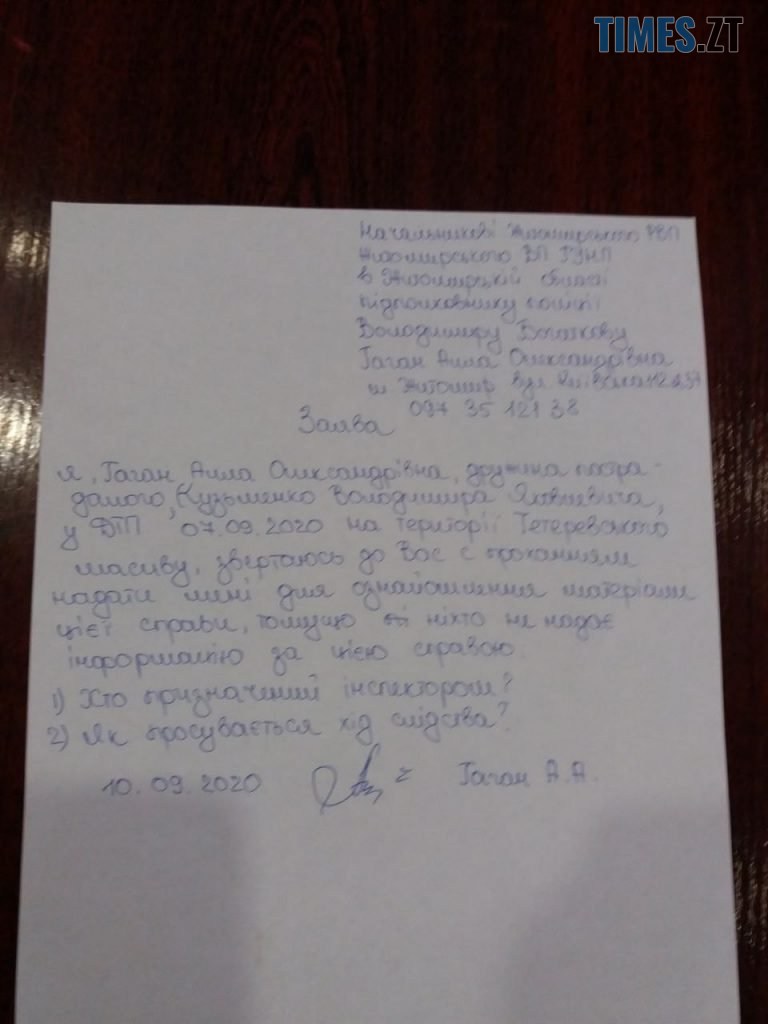 TIMES.ZT
Начальникові Житомирського РВП
Житомирського ВП ГУНП
в Житомирській області
підполковнику поліції
Володимиру
Гаган Алла Олександрівна
м Житомир вул Київська
097 35 121 38
Заява
Я, Гаган Алла Олександрівна, дружина постра-
далого, Кузьменко Володимира Яковлевича,
у ДТП 07.09.2020 на території Тетеревського
масиву, звертаюсь до Вас с проханням
надати мені для ознайомлення матеріали
цієї справи, томущо ніхто не надає
інформацію за цією справою.
1) Хто призначений інспектором?
2) Як просувається хід слідства?
10.09.2020 Гаган А.А.